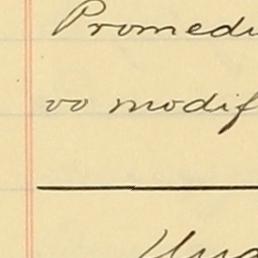 Promedi
vo modif